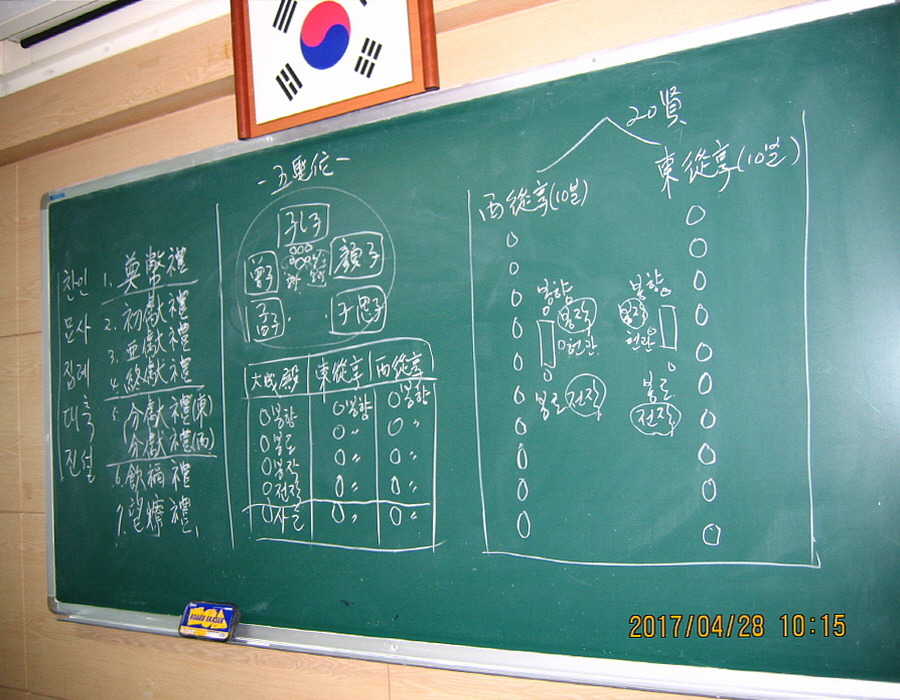 찬인
문사
집례
대축
진설
1. 奠幣禮
2. 初獻禮
3. 亞獻禮
4. 終獻禮
5. 分獻禮(東)
分獻禮(西)
6. 飮福禮
7. 望燎禮
-五聖位-
孔子
曾子
顔子
孟子
子思子
大成殿 東從享 西從享
봉향 봉향 봉향
봉로 〃 〃
봉작 〃 〃
전작 〃 〃
사준 〃 〃
20賢
西從享(10분)
東從享(10분)
봉향
봉작
헌관
봉로 전작
봉향
봉작
헌관
봉로
전작
BOARD ERASER
2017/04/28 10:15